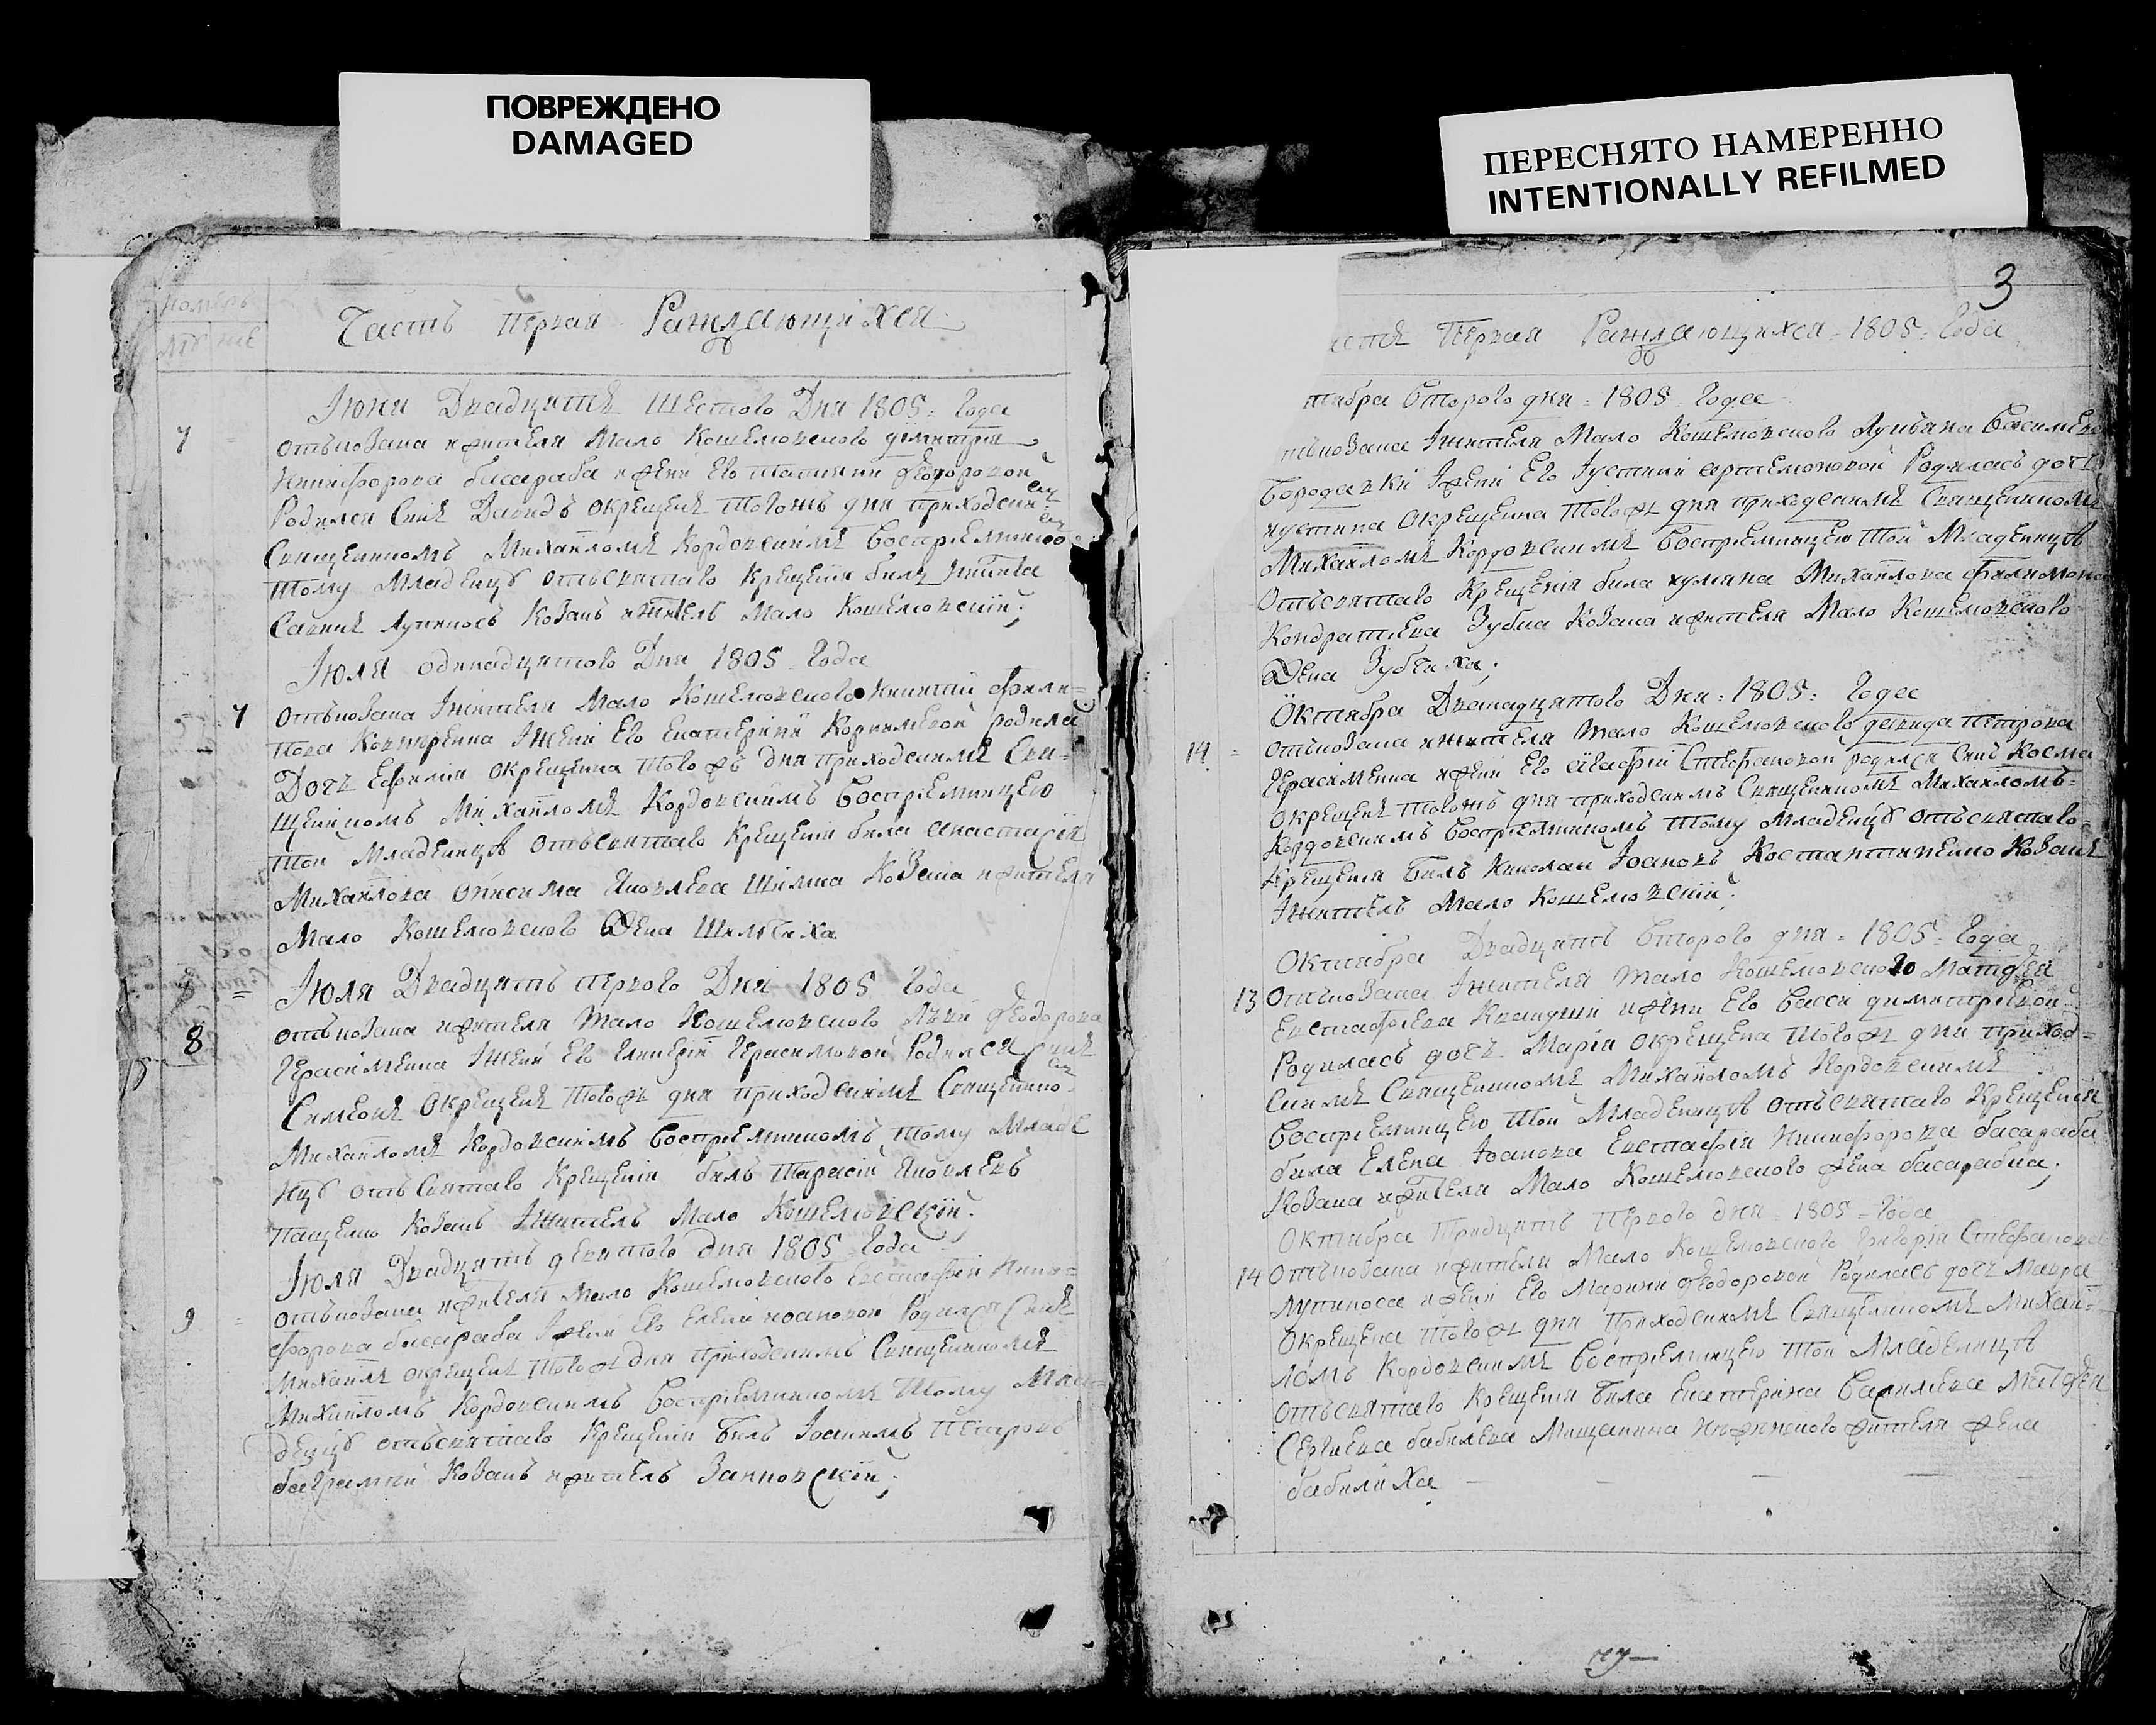 ПОВРЕЖДЕНО
DAMAGED
ПЕРЕСНЯТО НАМЕРЕННО
INTENTIONALLY REFILMED
3
Часть первая Раждающихся
7
Июня Двадцять Шестого Дня 1805 Года
отъкозака жителя Мало Кошелювского димитрия
Никифорова басараба жени Его татияни феодоровой
Родился Синъ Давидъ окрещенъ тогожъ дня приходским
Священикомъ Михаиломъ Кордовскимъ Восприемником
тому Младенцу отъсвятаго крещения билъ
Савинъ Лупиносъ Козакъ жытель Мало Кошелювский;
Июля одинадцятого Дня 1805 Года
7
отъкозака Жителя Мало Кошелювского Никити фили=
пова Жени Его Екатерини Корниевой родила
Дочъ Евфимия окрещена тогожъ дня приходскимъ Свя=
щеникомъ Михаиломъ Кордовскимъ Восприемницею
той Младенице отъсвятаго крещения била анастасия
Михайлова онисима Яковлева Козака жителя
Мало Кошелювского Жена
Июля Двадцять первого Дня 1805 Года
8
отъкозака жителя Мало Кошелювского Луки феодорова
Герасименка Жени Его Гликерии Герасимовой Родился Синъ
Симеонъ окрещенъ тогожъ дня приходскимъ Священико
Михаиломъ Кордовскимъ Восприемникомъ тому Младе
нцу отъ Святаго Крещения билъ Тарасий Яковлевъ
пащенко Козакъ Житель Мало Кошелювский.
Июля Двадцять девятого дня 1805 Года
9
отъкозака жителя Мало Кошелювского Евстафия Ники=
форова басараба Жени Его Елени иоановой Родился Синъ
Михаилъ окрещенъ тогожъ дня приходскимъ Священикомъ
Михаиломъ Кордовскимъ Восприемникомъ тому Мла=
денцу отъсвятаго крещения билъ Иоакимъ Петровъ
Козакъ житель
Первая Раждающихся 1805 Года
Второго дня 1805 Года
Жителя Мало Кошелювского Лукьяна Василиева
Бородавки Жени Его Иустини артемоновой Родилась дочъ
иустина окрещена тогожъ дня приходскимъ Священикомъ
Михаиломъ Кордовскимъ Восприемницею той Младенице
отъсвятаго Крещения била Михайлова Филимона
Кондратиева Зубка Козака жителя Мало Кошелювского
Жена Зубчиха;
Октября Дванадцятого Дня 1805 Года
14
отъкозака жителя Мало Кошелювского давида петрова
Герасименка жени Его агафии Стефановой родился Синъ Косма
окрещенъ тогожъ дня приходскимъ Священикомъ Михаиломъ
Кордовскимъ Восприемникомъ тому Младенцу отъсвятаго
крещения билъ Николай Иоановъ Костантиненко Козакъ
Житель Мало Кошелювский;
Октября Двадцять Второго дня 1805 Года
13
отъкозака Жителя Мало Кошелювского Матфея
Евстафиева жени Его Васси димитриевой
Родилась дочъ Мария окрещена тогожъ дня приход=
скимъ Священикомъ Михаиломъ Кордовскимъ
Восприемницею той Младенице отъсвятаго Крещения
била Елена Иоанова Евстафия Никифорова басараба
Козака жителя Мало Кошелювского жена басарабка;
Октября Тридцять Первого дня 1805 Года
14
отъкозака жителя Мало Кошелювского Григория Стефанова
Лупиноса жени Его Марии феодоровой Родилась дочъ Мавра
окрещена тогожъ дня Приходскимъ Священикомъ Михаи=
ломъ Кордовскимъ Восприемницею той Младенице
отъсвятаго Крещения била Екатерина Василиева Матфея
Сергиева бабилева Мищанина Нежинского жителя жена
бабилиха